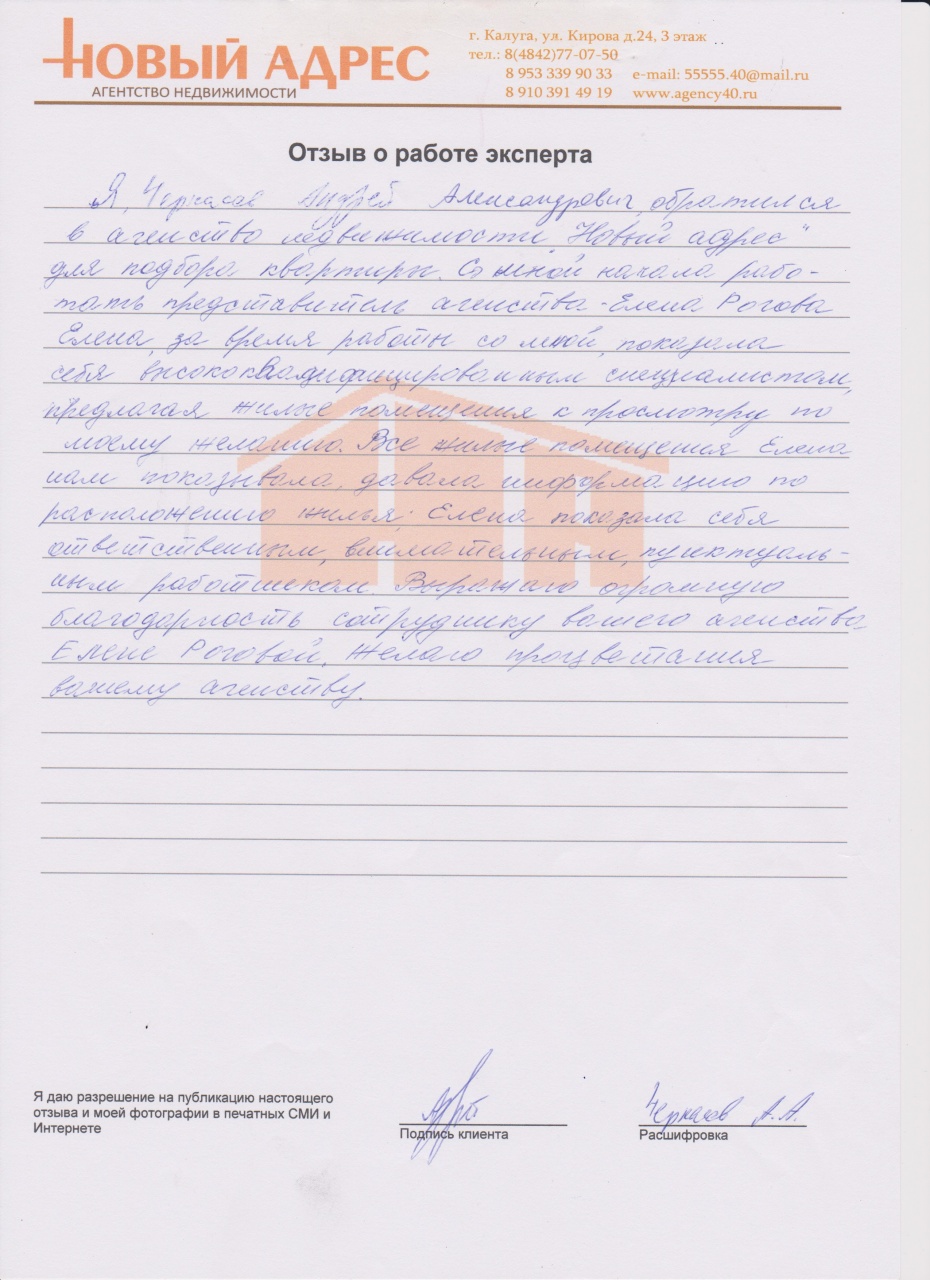 НОВЫЙ АДРЕС
АГЕНТСТВО НЕДВИЖИМОСТИ
г. Калуга, ул. Кирова д.24, 3 этаж
тел.: 8(4842)77-07-50
8 953 339 90 33 e-mail: 55555.40@mail.ru
8 910 391 49 19 www.agency40.ru
Отзыв о работе эксперта
Я, Черкасов Андрей Александрович, обратился
в агенство недвижимости „Новый адрес"
для подбора квартиры. Со мной начала рабо-
тать представитель агенства - Елена Рогова
Елена, за время работы со мной, показала
себя высококвалифицированным специалистом,
предлагая жилые помещения к просмотру по
моему желанию. Все жилые помещения Елена
нам показывала, давала информацию по
расположению жилья. Елена показала себя
ответственным, внимательным, пунктуаль-
ным работником. Выражаю огромную
благодарность сотруднику вашего агенства
Елене Роговой. Желаю процветания
вашему агенству.
Я даю разрешение на публикацию настоящего
отзыва и моей фотографии в печатных СМИ и
Интернете
Подпись клиента
Черкасов А.А.
Расшифровка